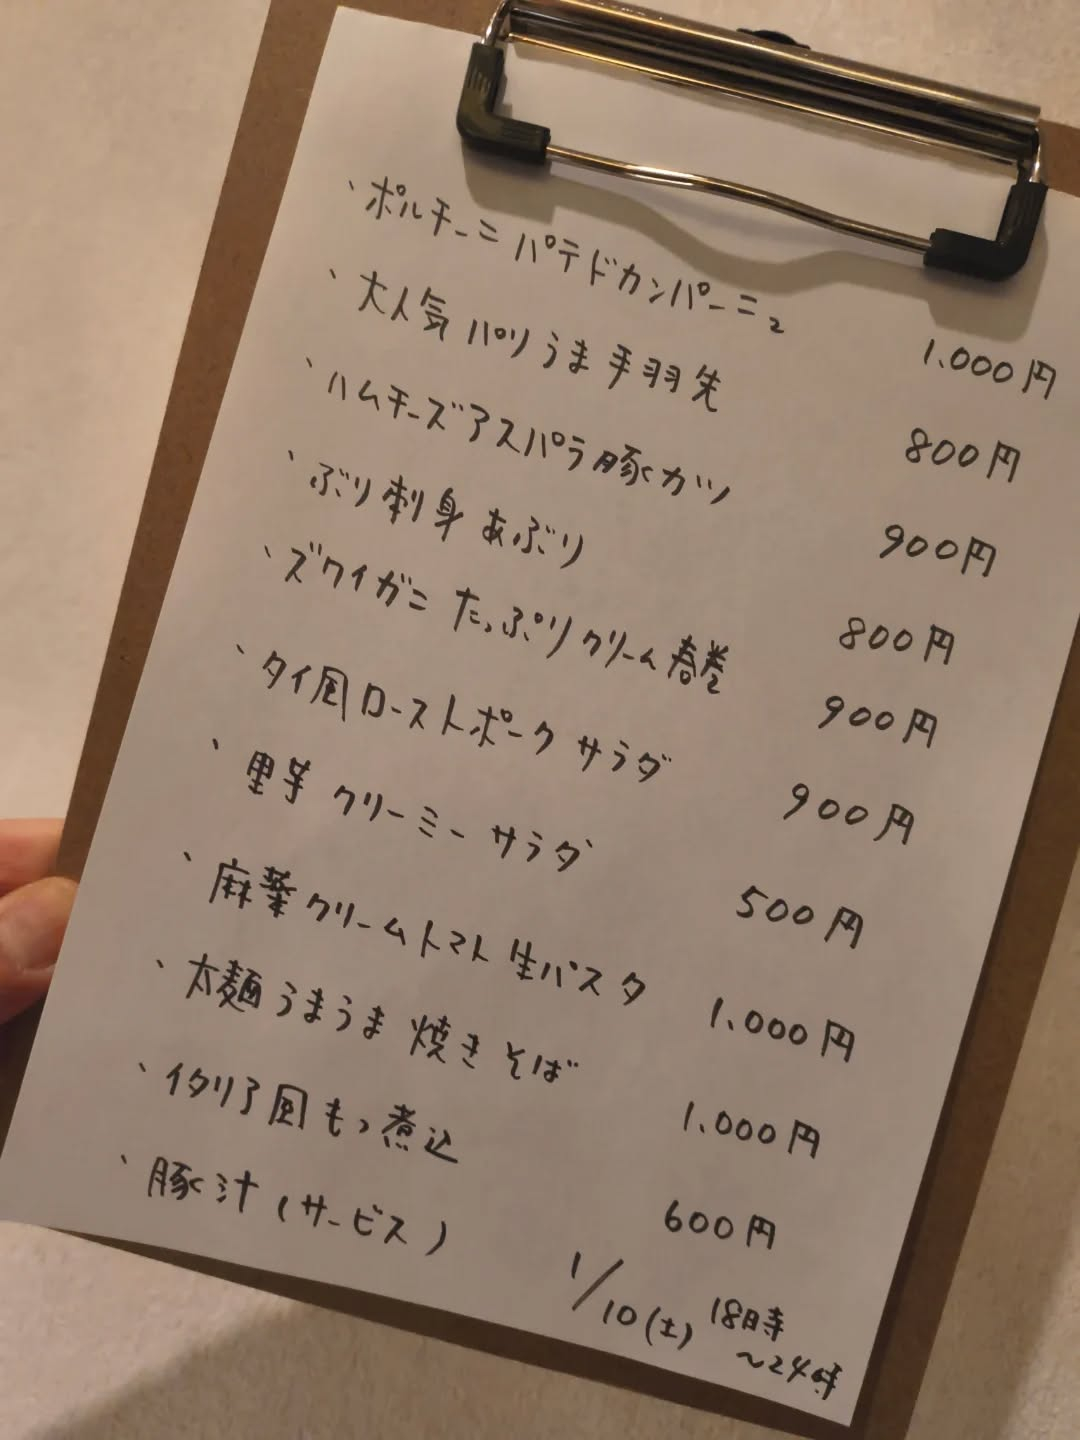 、ポルチーニ パテドカンパーニュ 1.000円
、大人気 パリうま手羽先 800円
、ハムチーズアスパラ豚カツ 900円
、ぶり刺身 あぶり 800円
、ズワイガニ たっぷりクリーム春巻 900円
、タイ風ローストポーク サラダ 900円
、里芋 クリーミー サラダ 500円
、麻薬クリームトマト生パスタ 1.000円
、太麺うまうま 焼きそば 1.000円
、イタリア風もつ煮込 600円
、豚汁(サービス)
1/10(土) 18時
~24時